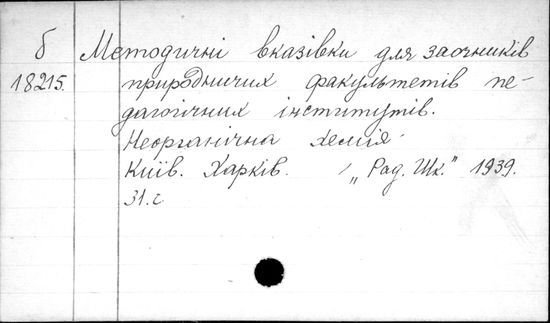 б Методичні вказівки для заочників
18215. природничих факультетів пе-
дагогічних інститутів.
Неорганічна хемія.
Київ. Харків. / „Рад. Шк.“ 1939.
31.с